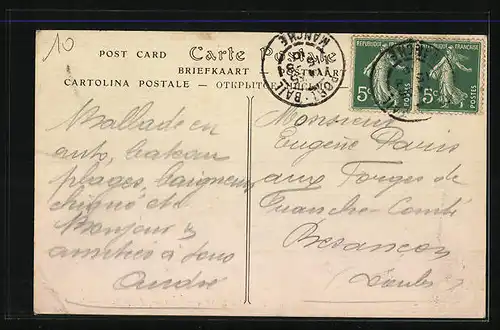 10
POST CARD Carte Postale
BRIEFKAART POSTKAART
CARTOLINA POSTALE
PORTBAIL
MANCHE
REPUBLIQUE FRANÇAISE
5c
REPUBLIQUE FRANÇAISE
5c
Ballade en
auto, bateau
plages, baigneurs
etc
Bonjour &
amitiés à tous
André
Monsieur
Eugène Paris
aux Forges de
Franche-Comté
Besançon
(Doubs)